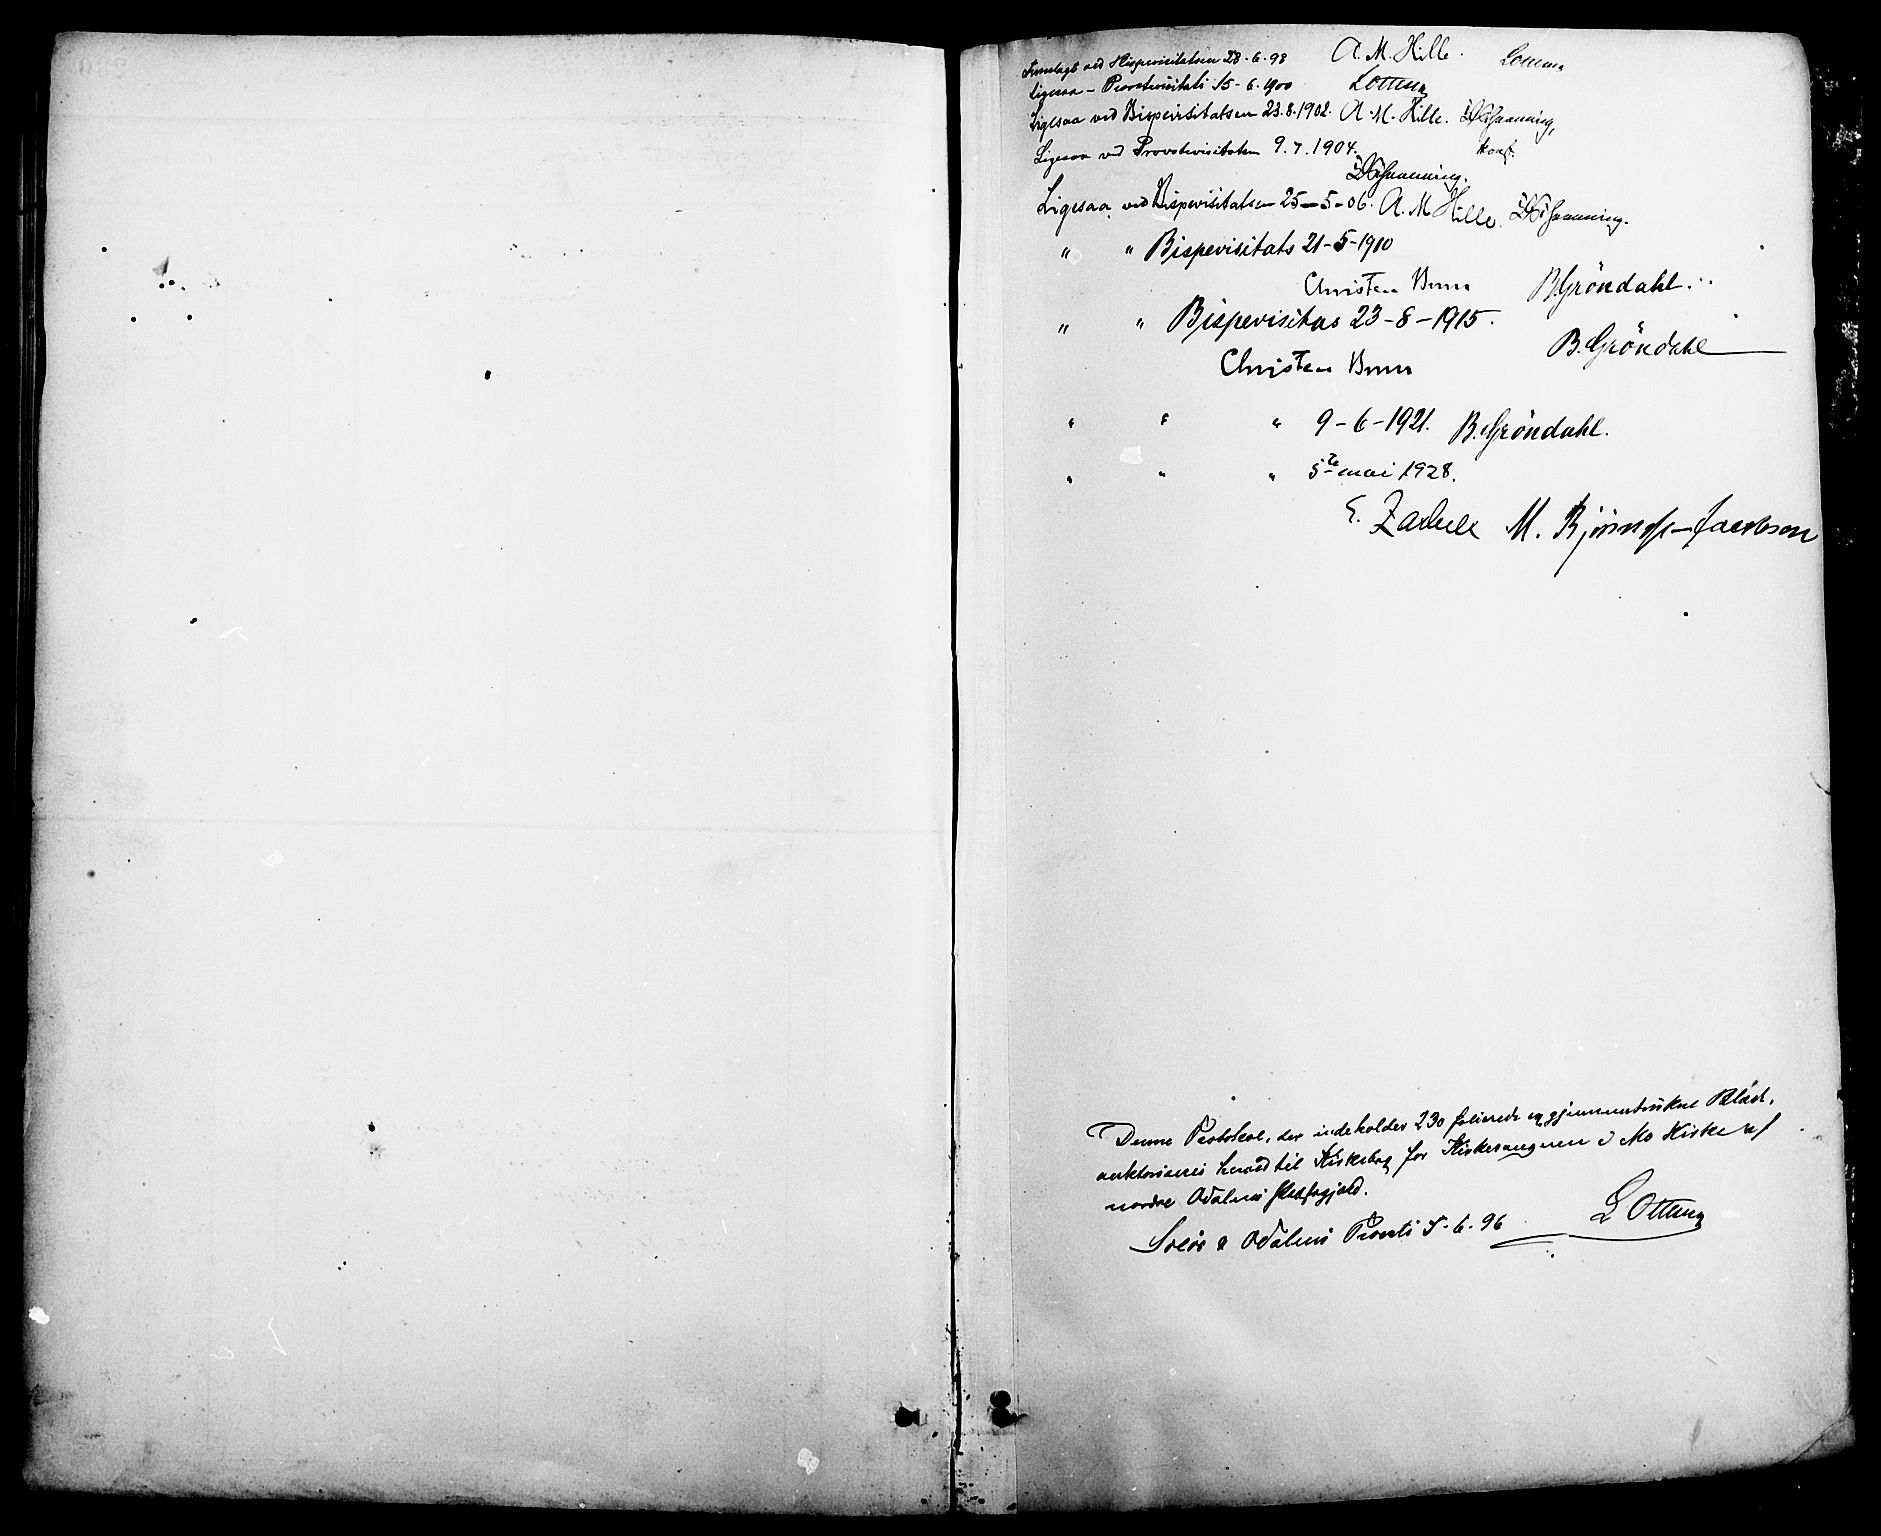 Fremlagt ved Bispevisitatsen 28-6-98 A. M. Hille.
Ligesaa - Provstevisitats 15-6-1900
Ligesaa ved Bispevisitatsen 23.8.1902. A. M. Hille.
konst.
Ligesaa ved Provstevisitatsen 9.7.1904.
Ligesaa ved Bispevisitatsen 25-5-06. A. M Hille.
" " Bispevisitats 21-5-1910
Christen Brun B. Gröndahl.
" " Bispevisitas 23-8-1915.
Christen Brun B. Gröndahl
" " " 9-6-1921. B. Gröndahl.
" " " 5te mai 1928.
E. M. Jacobsen
Denne Protokol, der indeholder 230 folierede og gjennemtrukne Blade,
auktoriseres herved til Kirkebog for Kirkesangeren i Mo Kirke af
nordre Odalens Præstegjæld.
Solør & Odalens Provsti 5-6-96 Ottesen